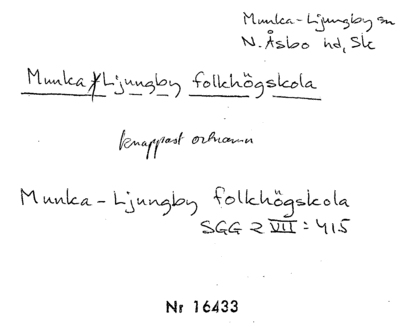 Munka-Ljungby sn
N. Åsbo hd, Sk
Munka-Ljungby folkhögskola
knappast ortnamn
Munka-Ljungby folkhögskola
SGG 2 VII: 415
Nr 16433